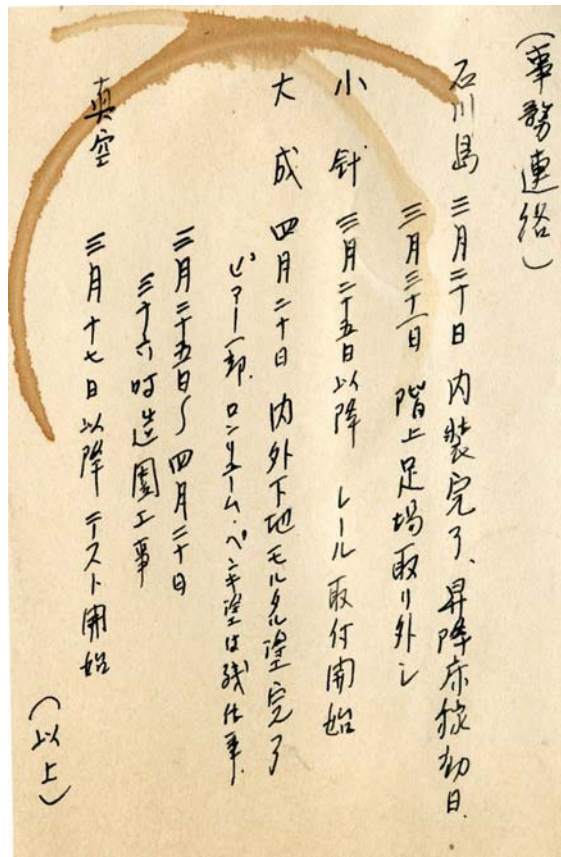 (事務連絡)
石川島 三月二十日 内装完了、昇降床稼動日.
三月三十一日 階上足場取り外し
小針 三月二十五日以降 レール取付開始
大成 四月二十日 内外下地モルタル塗完了
ピアー一部. ロンリューム・ペンキ塗は残仕事.
三月二十五日〜四月二十日
三十六吋造園工事
真空 三月十七日以降 テスト開始
(以上)